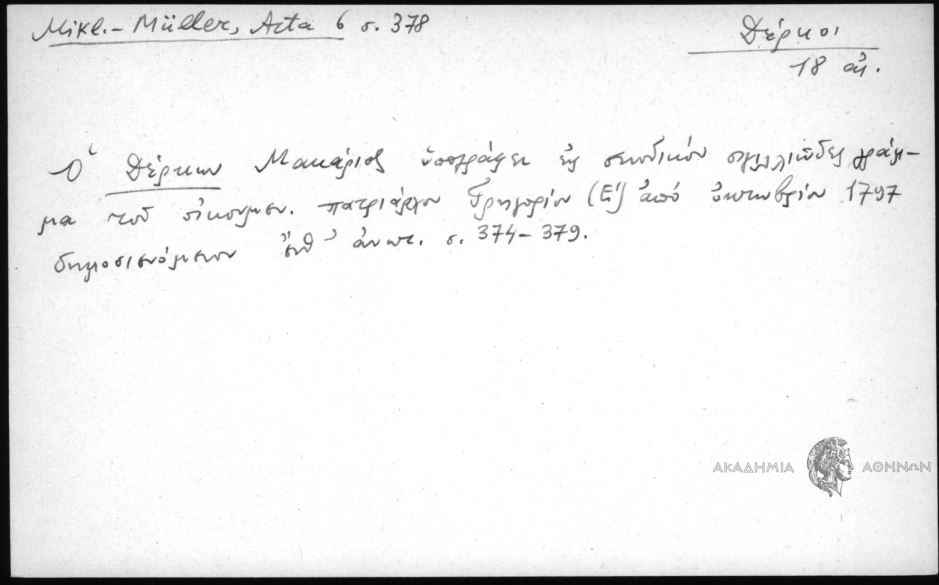 Mikl.- Müller, Acta 6 σ. 378
Δέρκοι
18 αἰ.
Ὁ Δέρκων Μακάριος ὑπογράφει εἰς συνοδικόν σιγιλλιῶδες γράμ-
μα τοῦ οἰκουμεν. πατριάρχου Γρηγορίου (Ε´) ἀπό ὀκτωβρίου 1797
δημοσιευόμενον ἔνθ' ἀνωτ. σ. 374-379.
ΑΚΑΔΗΜΙΑ ΑΘΗΝΩΝ